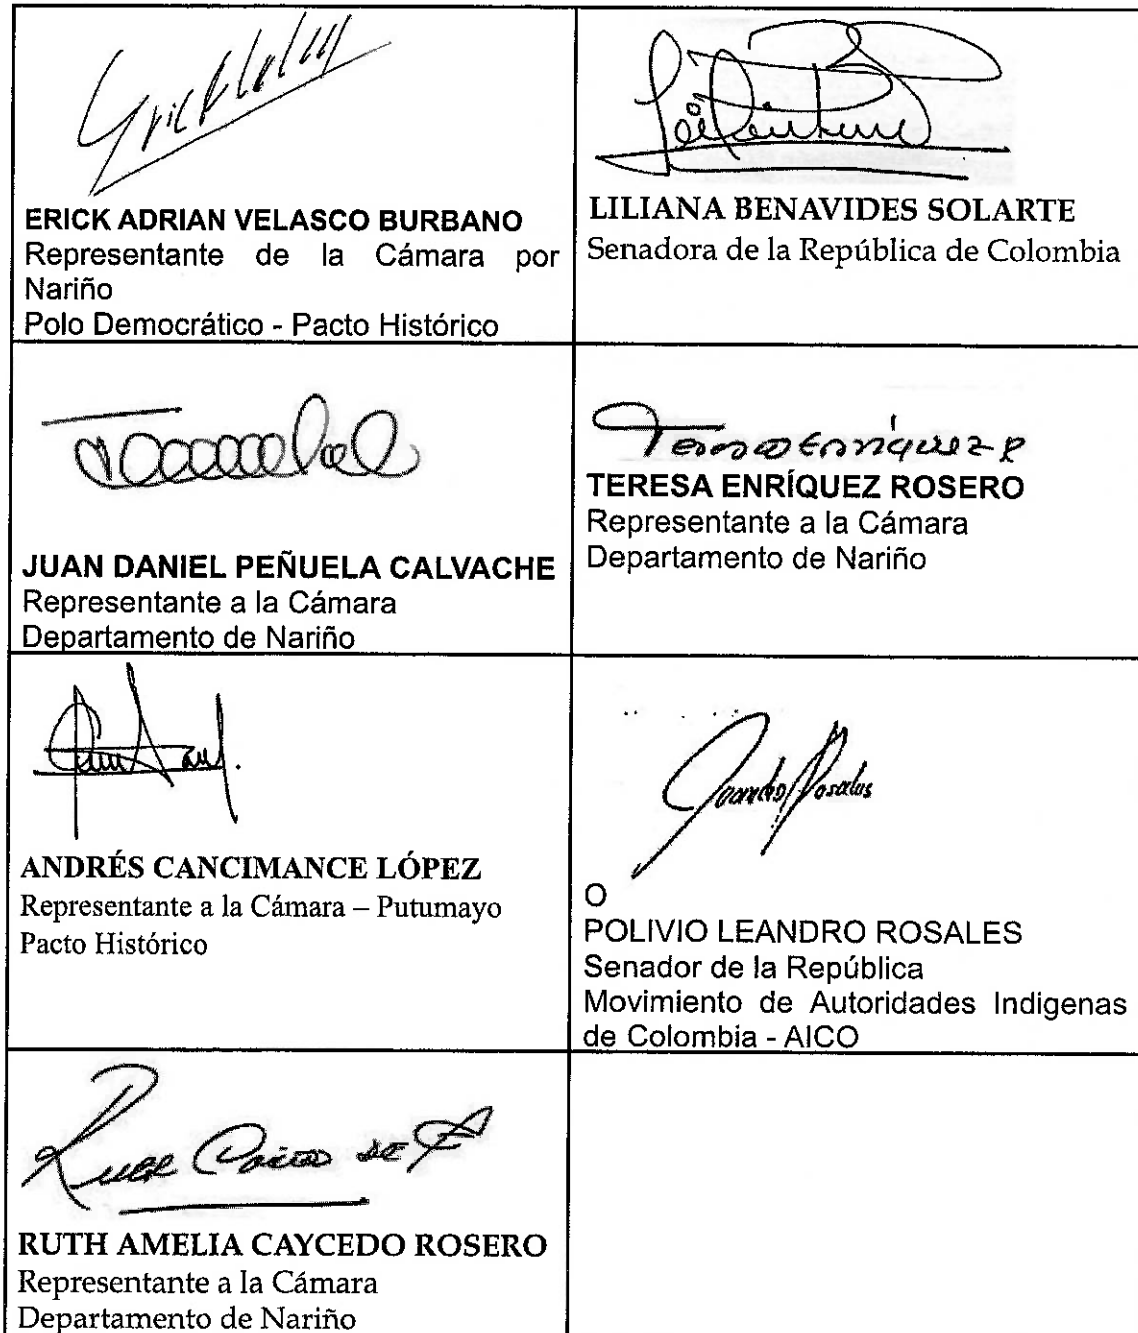 ERICK ADRIAN VELASCO BURBANO
Representante de la Cámara por
Nariño
Polo Democrático - Pacto Histórico
LILIANA BENAVIDES SOLARTE
Senadora de la República de Colombia
JUAN DANIEL PEÑUELA CALVACHE
Representante a la Cámara
Departamento de Nariño
Teresa Enríquez R
TERESA ENRÍQUEZ ROSERO
Representante a la Cámara
Departamento de Nariño
ANDRÉS CANCIMANCE LÓPEZ
Representante a la Cámara – Putumayo
Pacto Histórico
Leandro Rosales
O
POLIVIO LEANDRO ROSALES
Senador de la República
Movimiento de Autoridades Indigenas
de Colombia - AICO
RUTH AMELIA CAYCEDO ROSERO
Representante a la Cámara
Departamento de Nariño